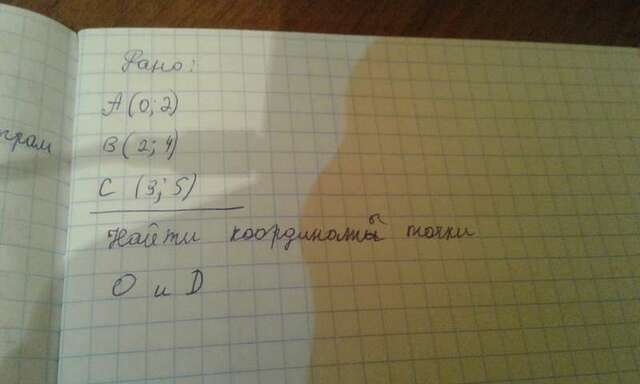 Дано:
A (0; 2)
B (2; 4)
C (3; 5)
Найти координаты точки
O и D